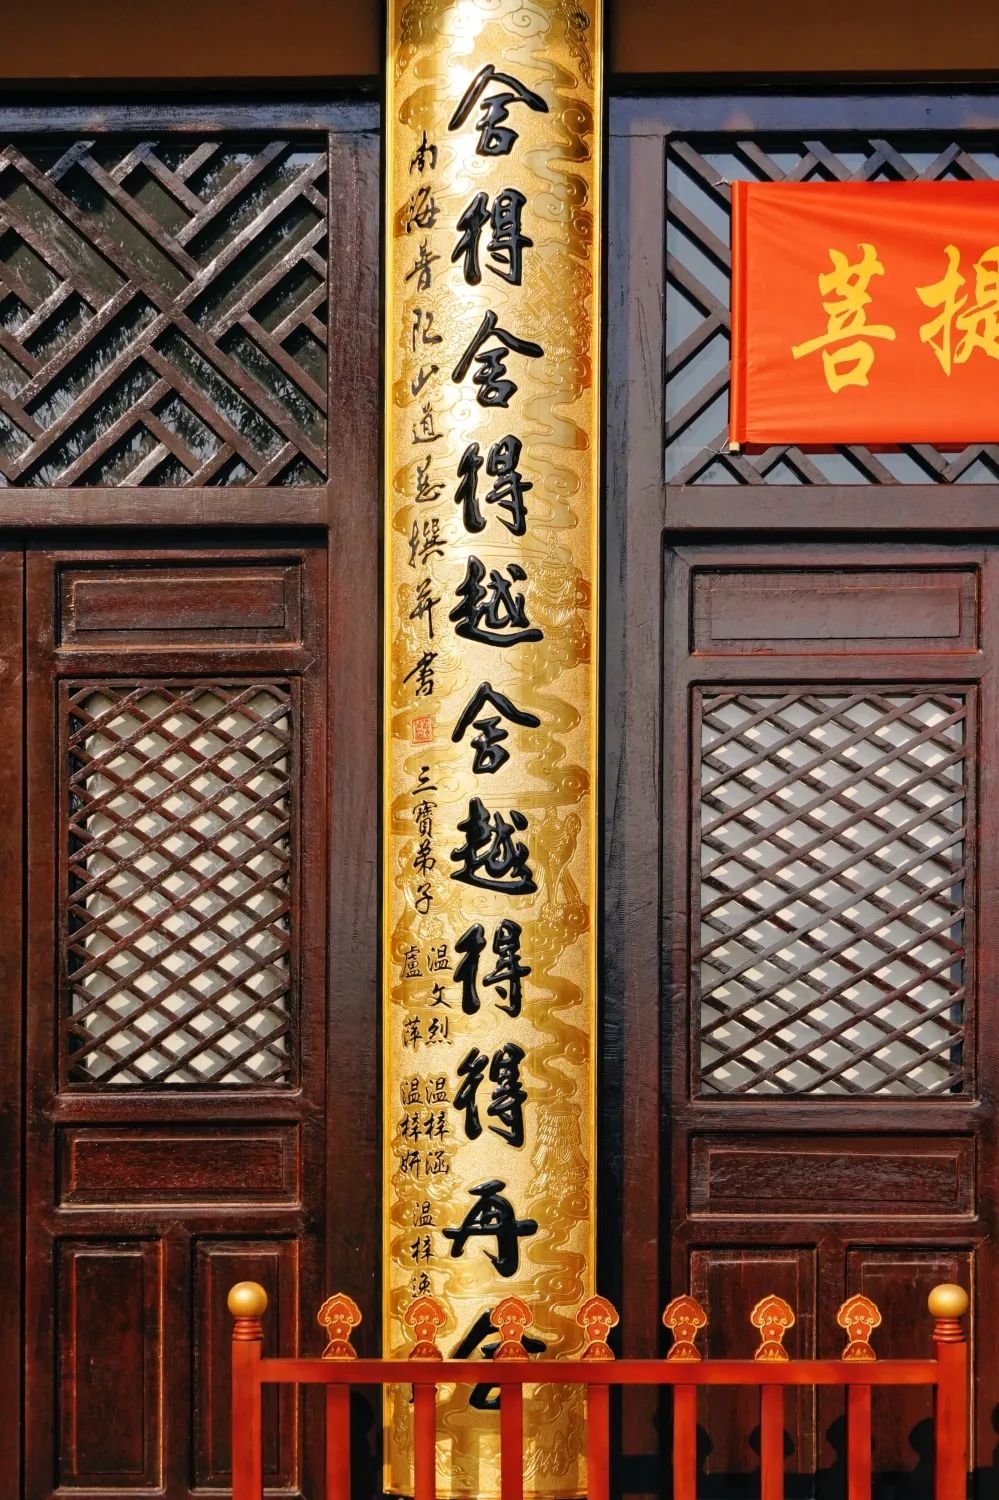 舍得舍得越舍越得得再舍
南海普陀山道慈撰并書
三寶弟子
温文烈
盧萍
温梓涵
温梓妍
温梓
菩提